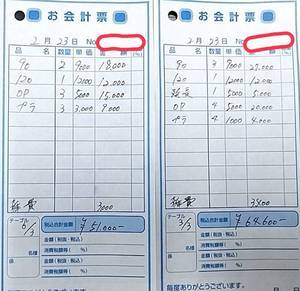 お会計票
2月23日 No.
品 数量 単価 金額
90 2 9000 18,000
120 1 12000 12,000
OP 3 5000 15,000
ナラ 3 3,000 9,000
雑費 3000
テーブル 6/3
税込合計金額 ¥51,000-
金額(税抜・税込)
消費税額等( %)
金額(税抜・税込)
消費税額等( %)
様
毎度ありがとうございます。
お会計票
2月23日 No.
品 数量 単価 金額
90 3 9000 27,000
120 1 12000 12,000
延長 1 5000 5,000
OP 4 5000 20,000
ナラ 4 1000 4,000
雑費 3400
テーブル 3/3
税込合計金額 ¥64,600-
金額(税抜・税込)
消費税額等( %)
金額(税抜・税込)
消費税額等( %)
様
毎度ありがとうございます。